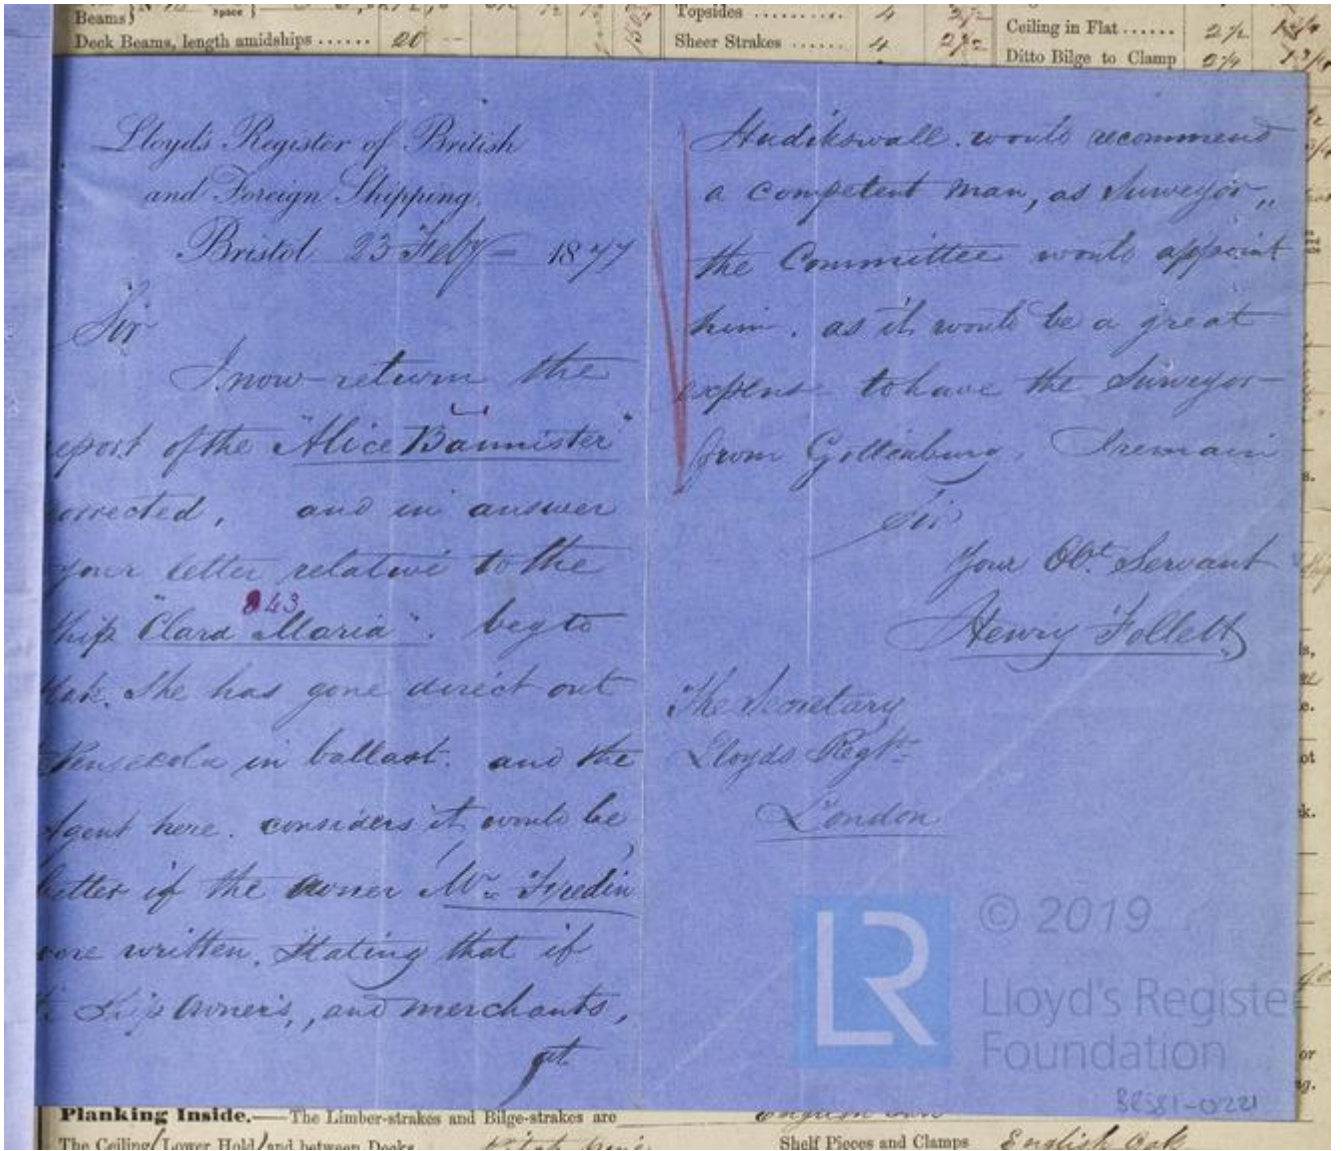 Beams
Space
Deck Beams, length amidships ...... 20
Topsides ......... 4 2 1/2
Sheer Strakes ...... 4 2 1/2
Ceiling in Flat ...... 2 1/2
Ditto Bilge to Clamp 2 1/4
Lloyd's Register of British
and Foreign Shipping,
Bristol 23 Feby 1877
Sir
I now return the
eport of the "Alice Bannister"
orrected, and in answer
your letter relative to the
843
Ship "Clara Maria". beg to
She has gone direct out
Pensecola in ballast. and the
Agent here. considers it, would be
better if the owner Mr Fredin
were written, Stating that if
Ship owner's, and merchants,
at
Hudikswall. would recommend
a competent man, as Surveyor,,
the Committee would appoint
him. as it would be a great
expens to have the Surveyor
from Gottenburg, I remain
Sir
Your Obt. Servant
Henry Follett
The Secretary
Lloyds Regtr
London
LR
© 2019
Lloyd's Register
Foundation
Planking Inside.—The Limber-strakes and Bilge-strakes are English Oak
The Ceiling, Lower Hold, and between Decks Pitch Pine
Shelf Pieces and Clamps English Oak